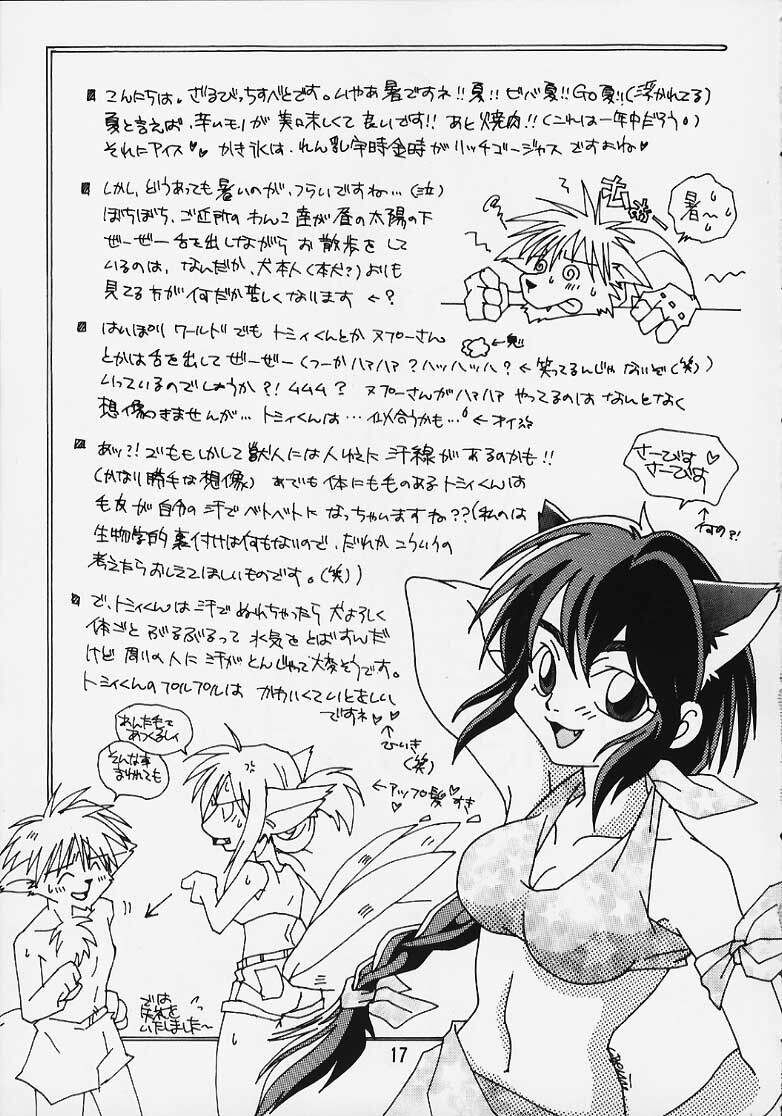 こんにちは。ざるびっちすべとです。いやあ暑ですネ!!夏!!ビバ夏!!Go夏!!(浮かれてる)
夏と言えば、辛いモノが美味しくて良いです!!あと焼肉!!(これは一年中だろう。)
それにアイス♥♥かき氷は、れん乳宇時金時がリッチゴージャスですよね♥
しかし、どうあっても暑いのが、つらいですね…(泣)
ぼちぼち、ご近所のわんこ達が昼の太陽の下
ぜーぜー舌を出しながらお散歩をして
いるのは、なんだか、犬本人(本犬?)よりも
見てる方が何だか苦しくなります ←?
暑〜い
はいぱぁワールドでもトミィくんとかヌプーさん
とかは舌を出してぜーぜー(つーかハァハァ?ハッハッハ?←笑ってるんじゃないぞ(笑))
いっているのでしょうか?!ムムム?ヌプーさんがハァハァやってるのはなんとなく
想像つきませんが…トミィくんは…似合うかも…。←オイ
あッ?!でももしかして獣人には人ゆえに汗線があるのかも!!
(かなり勝手な想像)あでも体にも毛のあるトミィくんは
毛皮が自分の汗でベトベトになっちゃいますね??(私のは
生物学的裏付けは何もないので、だれかこういうの
考えたらおしえてほしいものです。(笑))
さーびす♥
さーびす
↑何の?!
で、トミィくんは汗でぬれちゃったら犬よろしく
体ごとぶるぶるって水気をとばすんだ
けど周りの人に汗がとんじゃって大変そうです。
トミィくんのプルプルはかわいくていとをしい
ですネ♥♥
↑ひいき(笑)
←アップ髪♥すき
あんた毛で
あつくるしく
そんな事
言われても
では
失礼を
いたしました〜
17